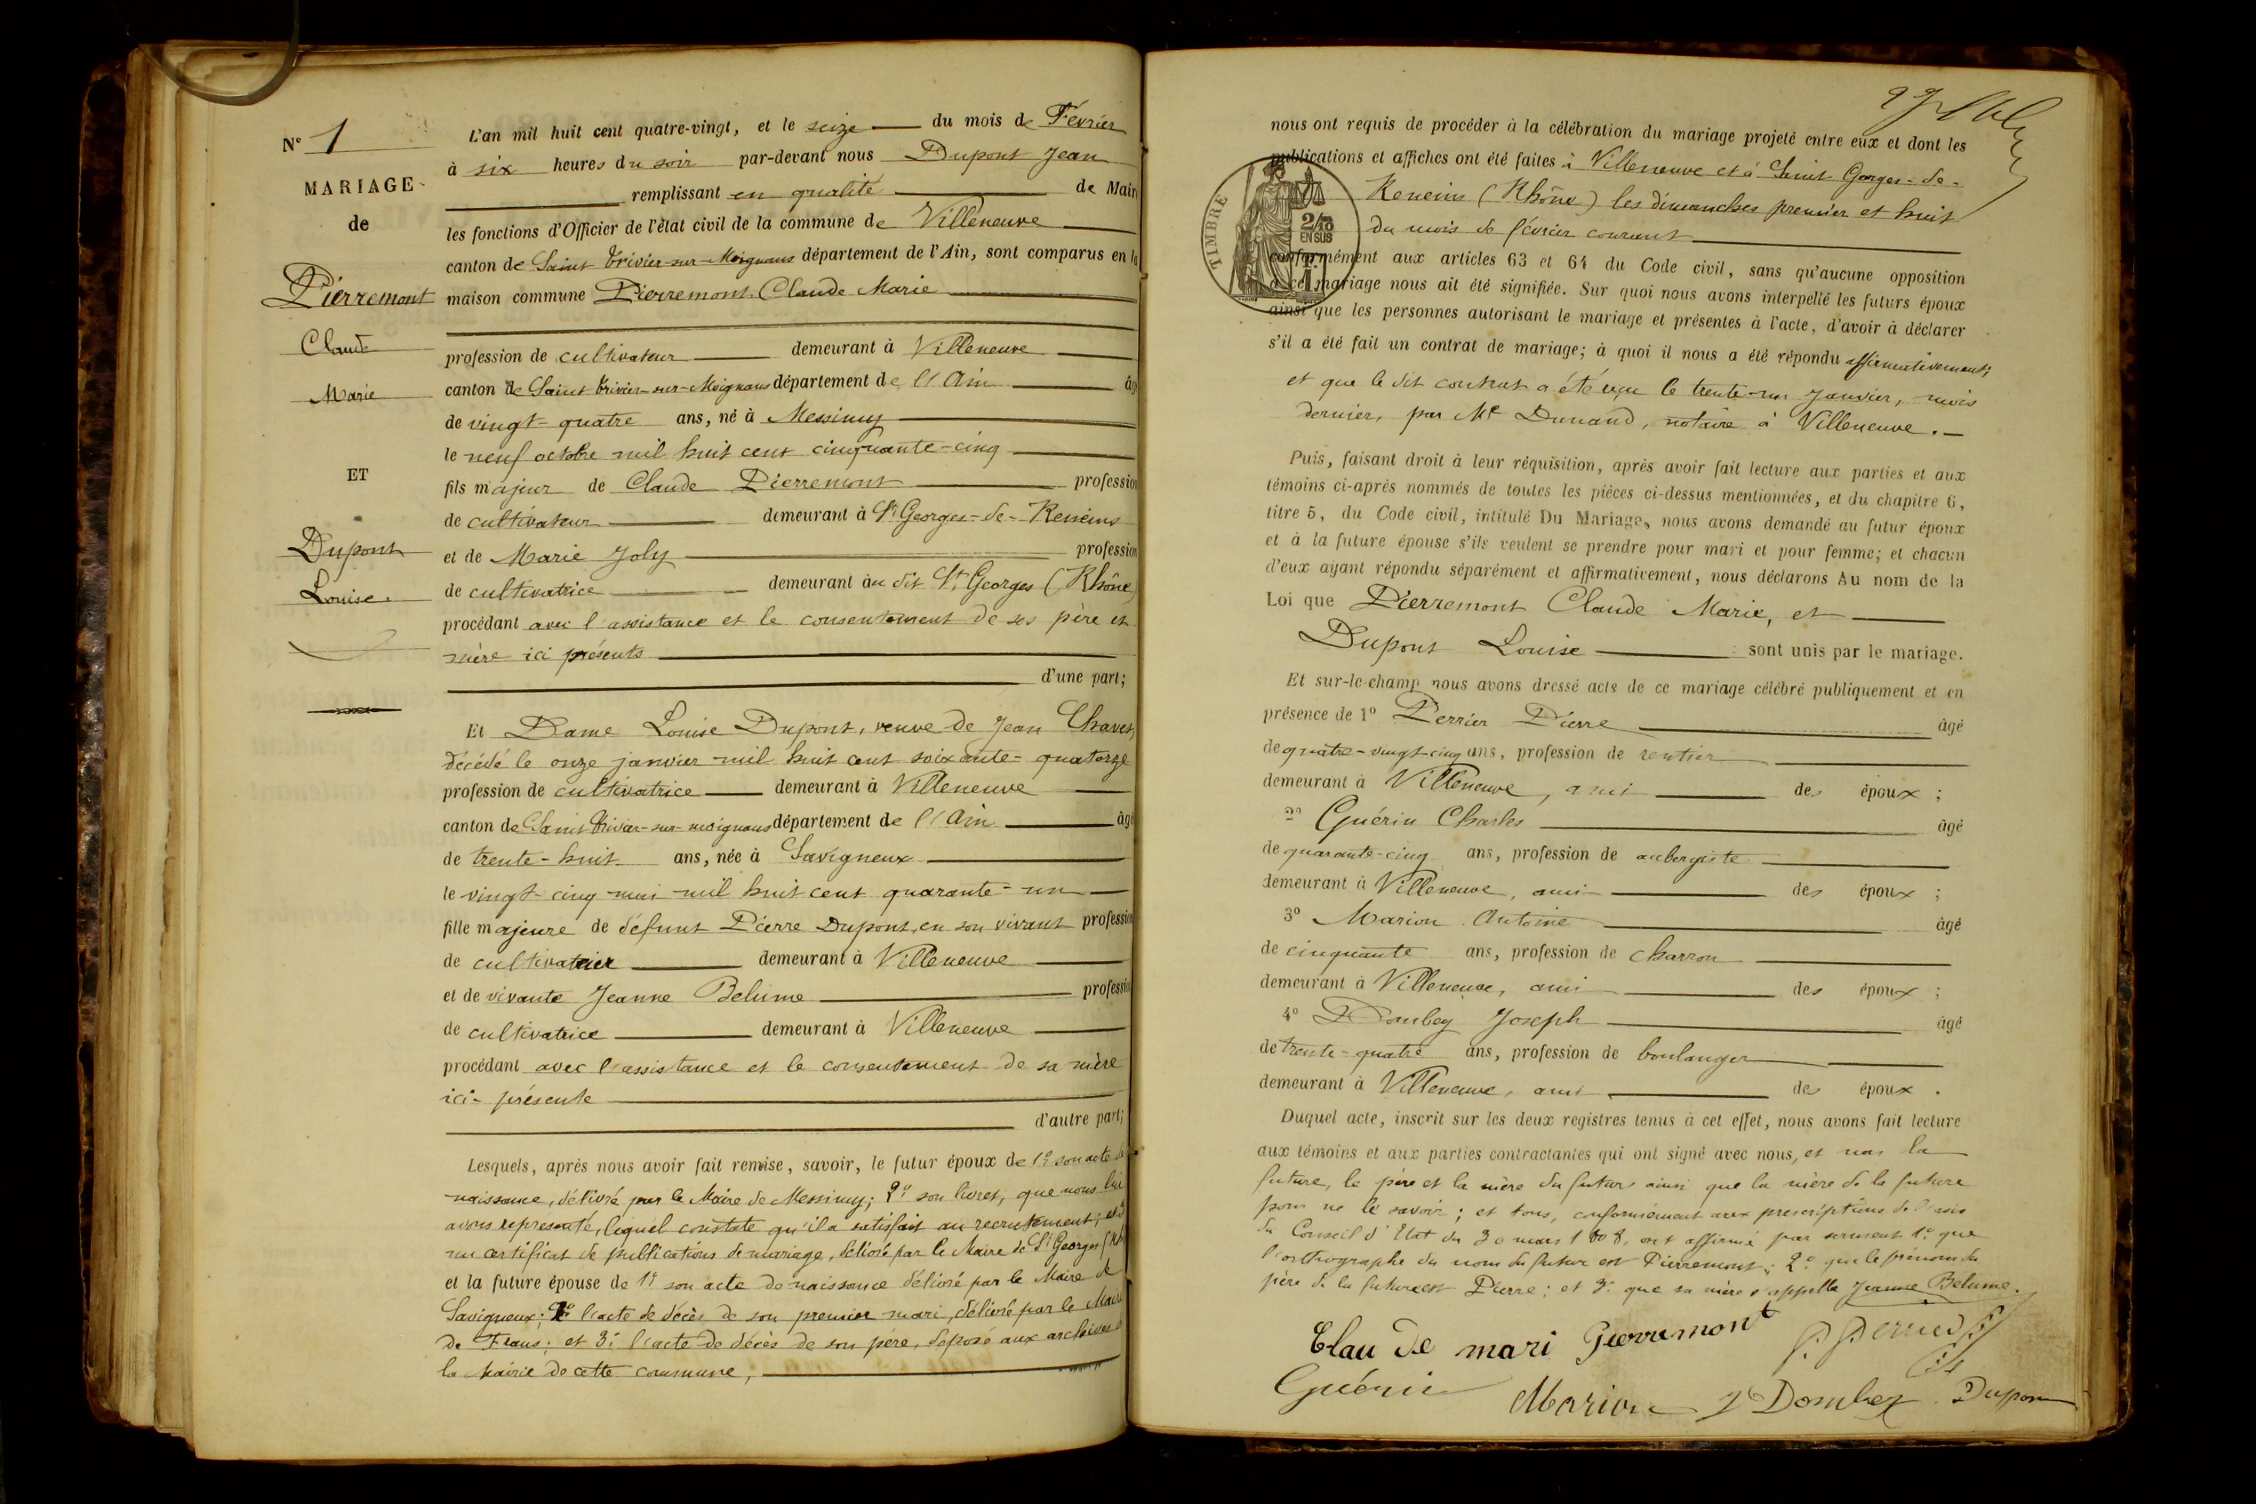 N° 1
MARIAGE
de
Pierremont
Claude
Marie
ET
Dupont
Louise.
L'an mil huit cent quatre-vingt, et le seize du mois de Février
à six heures du soir par-devant nous Dupont Jean
remplissant en qualité de Maire
les fonctions d'Officier de l'état civil de la commune de Villeneuve
canton de Saint Trivier-sur-Moignans département de l'Ain, sont comparus en la
maison commune Pierremont Claude Marie
profession de cultivateur demeurant à Villeneuve
canton de Saint Trivier-sur-Moignans département de l'Ain âgé
de vingt-quatre ans, né à Messimy
le neuf octobre mil huit cent cinquante-cinq
fils majeur de Claude Pierremont profession
de cultivateur demeurant à St Georges-de-Reneins
et de Marie Joly profession
de cultivatrice demeurant au dit St Georges (Rhône)
procédant avec l'assistance et le consentement de ses père et
mère ici présents
d'une part;
Et Dame Louise Dupont, veuve de Jean Chavet,
décédé le onze janvier mil huit cent soixante-quatorze
profession de cultivatrice demeurant à Villeneuve
canton de Saint Trivier-sur-moignans département de l'Ain âgé
de trente-huit ans, née à Savigneux
le vingt-cinq mai mil huit cent quarante-un
fille majeure de défunt Pierre Dupont, en son vivant profession
de cultivateur demeurant à Villeneuve
et de vivante Jeanne Belume profession
de cultivatrice demeurant à Villeneuve
procédant avec l'assistance et le consentement de sa mère
ici-présente
d'autre part;
Lesquels, après nous avoir fait remise, savoir, le futur époux de 1° son acte de
naissance, délivré par le Maire de Messimy; 2° son livret, que nous lui
avons représenté, lequel constate qu'il a satisfait au recrutement; et 3°
un certificat de publications de mariage, délivré par le Maire de St Georges
et la future épouse de 1° son acte de naissance délivré par le Maire de
Savigneux; 2° l'acte de décès de son premier mari, délivré par le Maire
de Frans; et 3° l'acte de décès de son père, déposé aux archives de
la Mairie de cette commune,
nous ont requis de procéder à la célébration du mariage projeté entre eux et dont les
publications et affiches ont été faites à Villeneuve et à Saint Gorges-de-
Reneins (Rhône) les dimanches premier et huit
du mois de février courant
TIMBRE
2/10
EN SUS
conformément aux articles 63 et 64 du Code civil, sans qu'aucune opposition
à ce mariage nous ait été signifiée. Sur quoi nous avons interpellé les futurs époux
ainsi que les personnes autorisant le mariage et présentes à l'acte, d'avoir à déclarer
s'il a été fait un contrat de mariage; à quoi il nous a été répondu affirmativement;
et que le dit contrat a été reçu le trente-un Janvier, mois
dernier, par Me Dunand, notaire à Villeneuve.
Puis, faisant droit à leur réquisition, après avoir fait lecture aux parties et aux
témoins ci-après nommés de toutes les pièces ci-dessus mentionnées, et du chapitre 6,
titre 5, du Code civil, intitulé Du Mariage, nous avons demandé au futur époux
et à la future épouse s'ils veulent se prendre pour mari et pour femme; et chacun
d'eux ayant répondu séparément et affirmativement, nous déclarons Au nom de la
Loi que Pierremont Claude Marie, et
Dupont Louise sont unis par le mariage.
Et sur-le-champ nous avons dressé acte de ce mariage célébré publiquement et en
présence de 1° Perrier Pierre âgé
de quatre-vingt-cinq ans, profession de rentier
demeurant à Villeneuve, ami des époux ;
2° Guérin Charles âgé
de quarante-cinq ans, profession de aubergiste
demeurant à Villeneuve, ami des époux ;
3° Marion Antoine âgé
de cinquante ans, profession de charron
demeurant à Villeneuve, ami des époux ;
4° Dombey Joseph âgé
de trente-quatre ans, profession de boulanger
demeurant à Villeneuve, ami des époux .
Duquel acte, inscrit sur les deux registres tenus à cet effet, nous avons fait lecture
aux témoins et aux parties contractantes qui ont signé avec nous, et non la
future, le père et la mère du futur ainsi que la mère de la future
pour ne le savoir; et tous, conformément aux prescriptions de l'avis
du Conseil d'Etat du 30 mars 1808, ont affirmé par serment 1° que
l'orthographe du nom du futur est Pierremont; 2° que le prénom du
père de la future est Pierre; et 3° que sa mère s'appelle Jeanne Belume.
Clau de mari Pierremont
Guérin Marion J Dombey Dupont